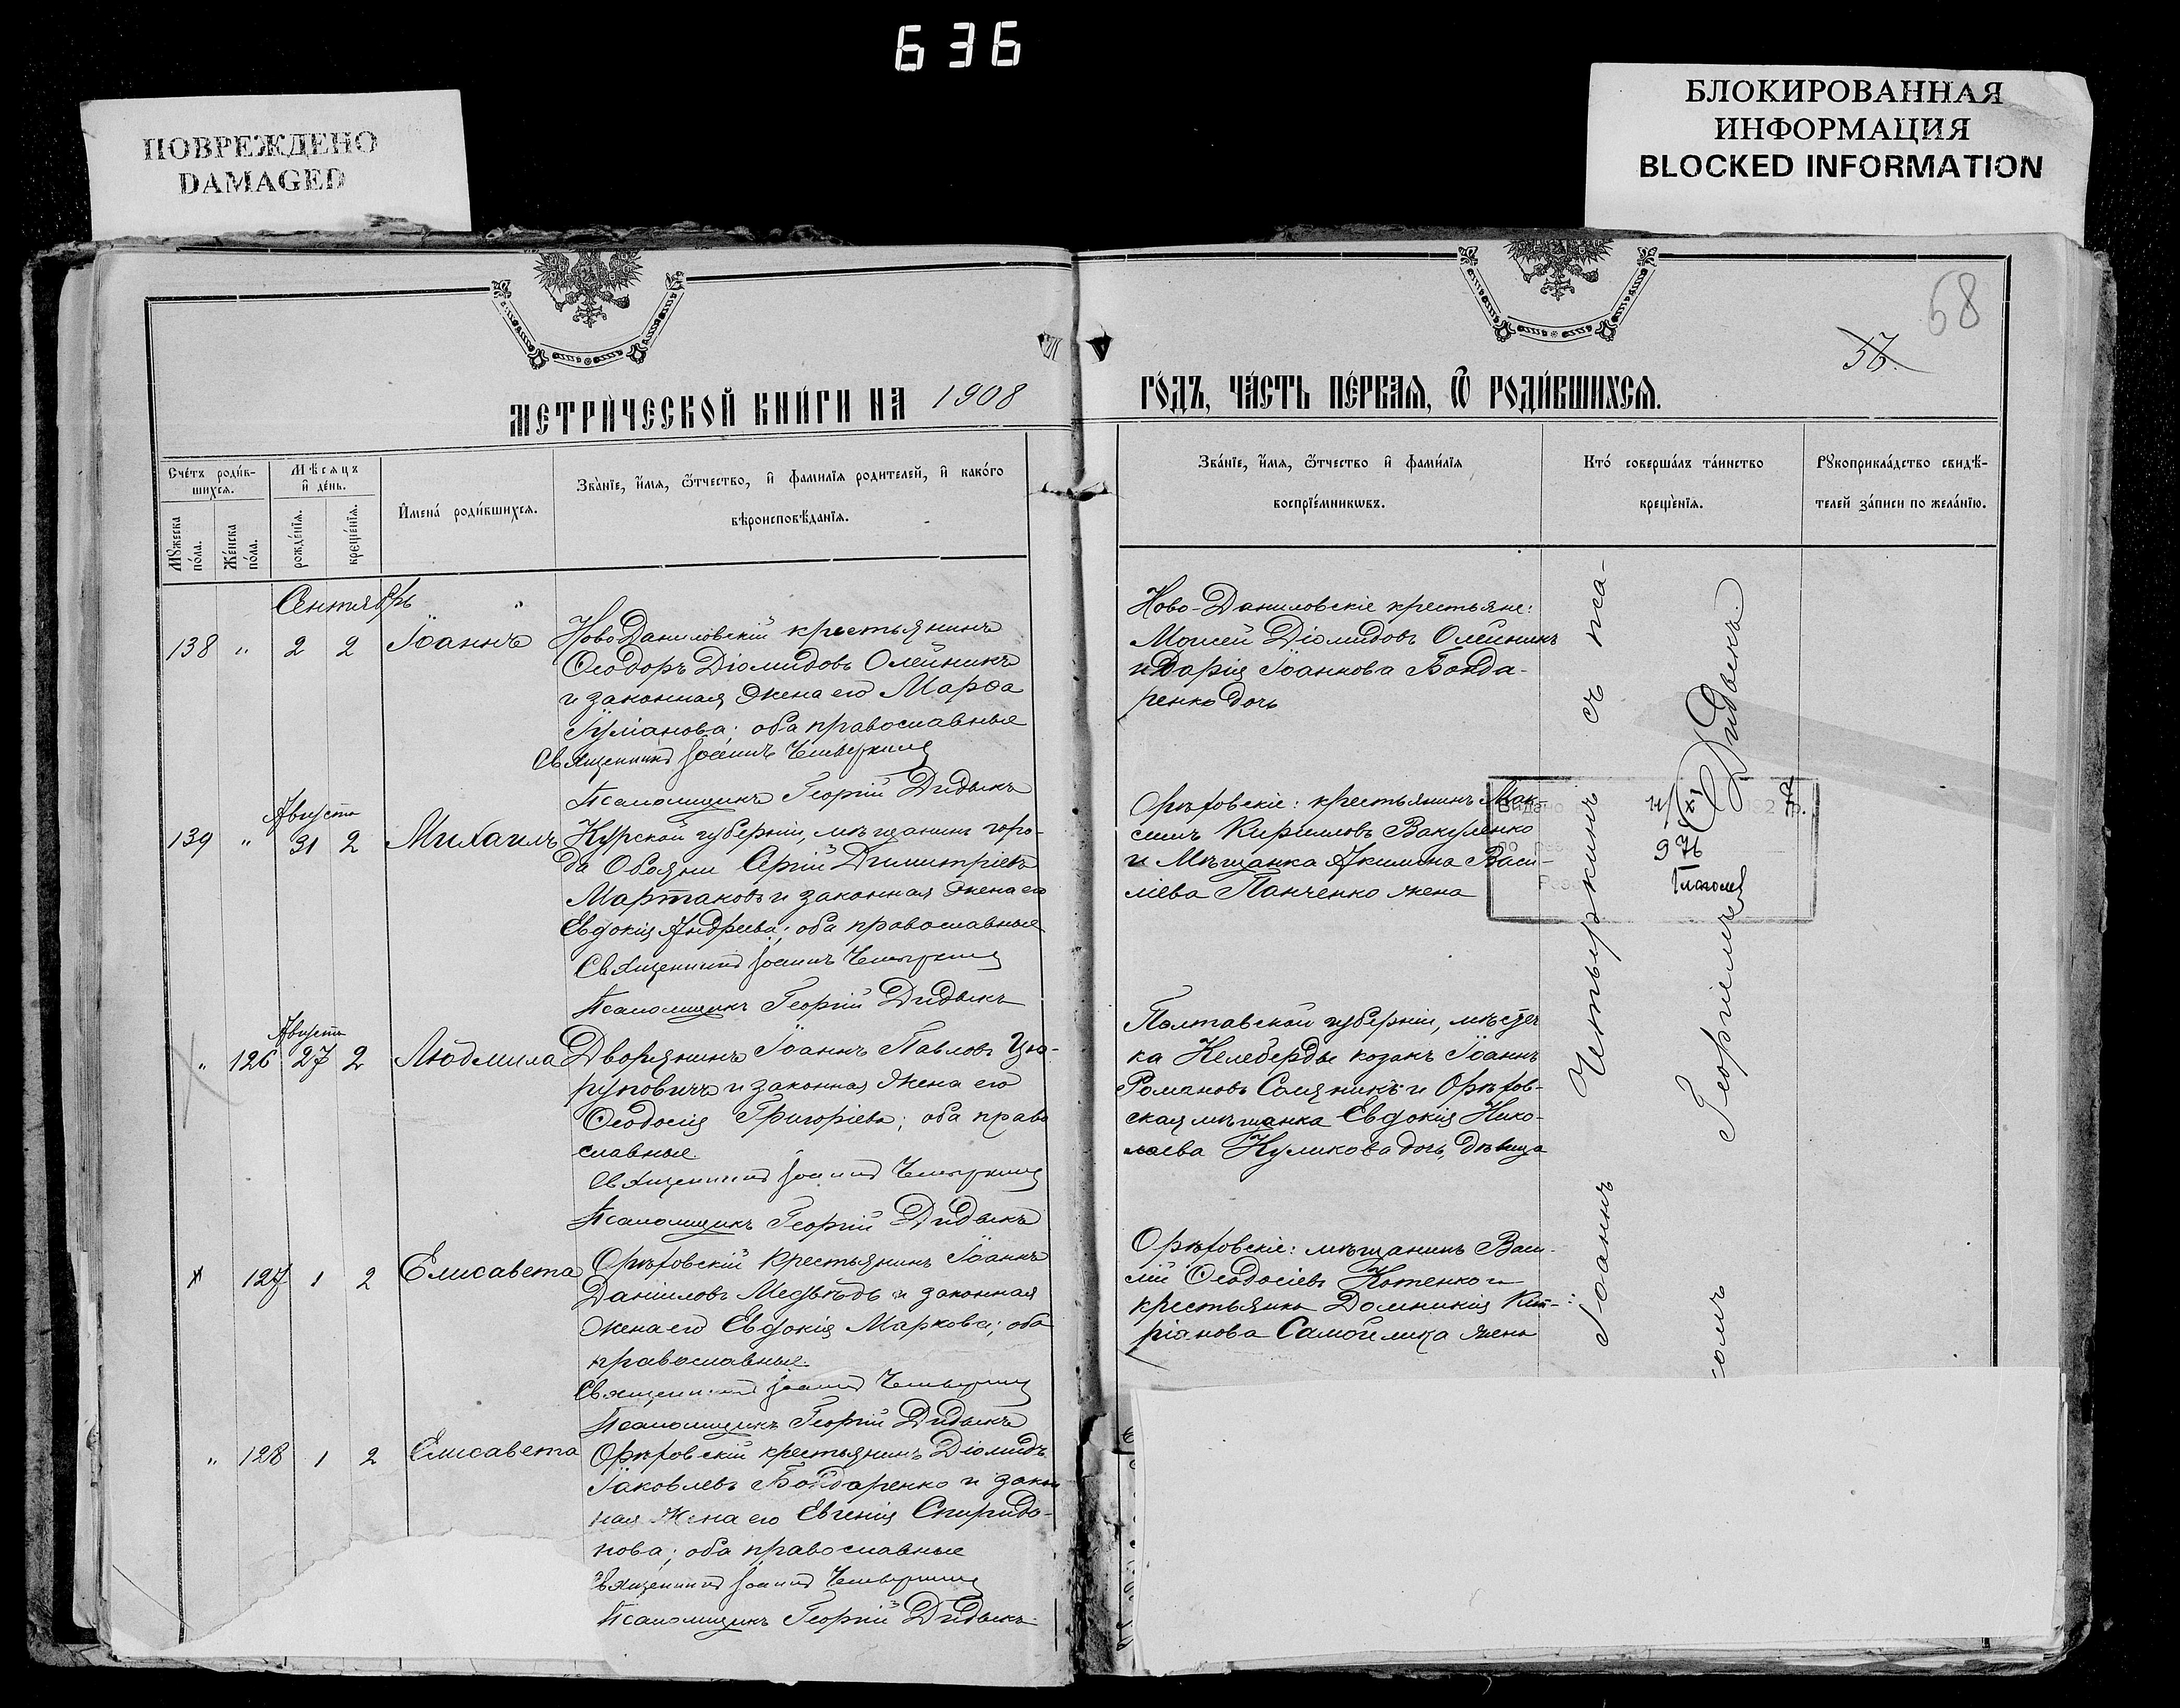 636
ПОВРЕЖДЕНО
DAMAGED
БЛОКИРОВАННАЯ
ИНФОРМАЦИЯ
BLOCKED INFORMATION
68
56.
МЕТРИ́ЧЕСКОЙ КНИ́ГИ НА 1908
ГО́ДЪ, ЧА́СТЬ ПЕ́РВАѦ, Ѽ РОДИ́ВШИХСѦ.
Сче́тъ роди́в-
шихсѧ.
Мѣ́сѧцъ
и҆ де́нь.
Мꙋ́жеска
по́ла.
Же́нска
по́ла.
рожде́нїѧ.
креще́нїѧ.
И҆мена́ роди́вшихсѧ.
Зва́нїе, и҆́мѧ, ѻ҆́тчество, и҆ фами́лїѧ роди́телей, и҆ како́гѡ
вѣроисповѣ́данїѧ.
Зва́нїе, и҆́мѧ, ѻ҆́тчество и҆ фами́лїѧ
воспрїе́мникѡвъ.
Кто́ соверша́лъ та́инство
креще́нїѧ.
Рꙋкоприкла́дство свидѣ́-
телей за́писи по жела́нїю.
Сентябрь
138 " 2 2 Іоаннъ
НовоДаниловскій крестьянинъ
Ѳеодоръ Діомидовъ Олейникъ
и законная жена его Марѳа
оба православные
Священникъ Іоаннъ Четыркинъ
Псаломщикъ Георгій Дидыкъ
Ново-Даниловскіе крестьяне:
Моисей Діомидовъ Олейникъ
и Дарія Іоаннова Бонда-
ренко дочь
Августа
139 " 31 2 Михаилъ
Курской губерніи, мѣщанинъ горо-
да Обояни Сергій Димитріевъ
Мартаковъ и законная жена его
Евдокія Андреева; оба православные
Священникъ Іоаннъ Четыркинъ
Псаломщикъ Георгій Дидыкъ
Орѣховскіе: крестьянинъ Мак-
симъ Кирилловъ Вакуленко
и Мѣщанка Акилина Васи-
ліева Панченко жена
Августа
" 126 27 2 Людмила
Дворянинъ Іоаннъ Павловъ Цю-
руповичъ и законная жена его
Ѳеодосія Григоріева; оба право
славные
Священникъ Іоаннъ Четыркинъ
Псаломщикъ Георгій Дидыкъ
Полтавской губерніи, мѣстеч
ка Келеберды козакъ Іоаннъ
Романовъ Соляникъ и Орѣхов-
ская мѣщанка Евдокія Нико-
лаева Куликова дочь, дѣвица
127 1 2 Елисавета
Орѣховскій крестьянинъ Іоаннъ
Даніиловъ Медвѣдь и законная
жена его Евдокія Маркова; оба
православные.
Священникъ Іоаннъ Четыркинъ
Псаломщикъ Георгій Дидыкъ
Орѣховскіе: мѣщанинъ Васи-
лій Ѳеодосіевъ Котенко и
крестьянка Домникія Кип-
ріанова Самойлика жена
" 128 1 2 Елисавета
Орѣховскій крестьянинъ Діомидъ
Іаковлевъ Бондаренко и закон
ная жена его Евгенія Спиридо-
нова; оба православные
Священникъ Іоаннъ Четыркинъ
Псаломщикъ Георгій Дидыкъ
Іоаннъ Четыркинъ съ пса-
омъ Георгіемъ Дидыкъ.